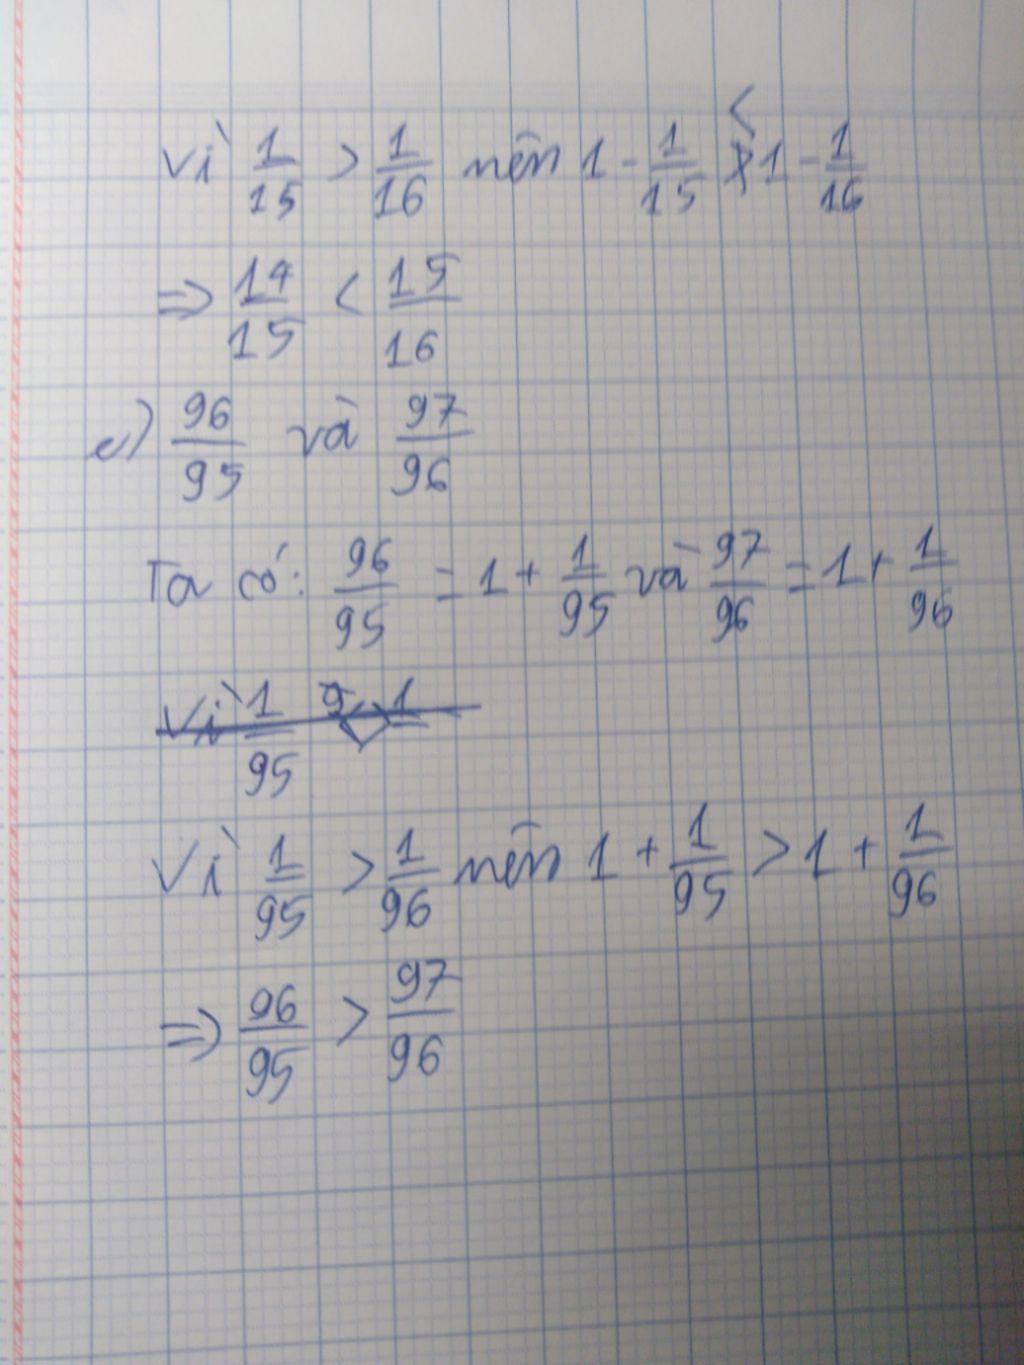 Vì 1/15 > 1/16 nên 1 - 1/15 < 1 - 1/16
=> 14/15 < 15/16
e) 96/95 và 97/96
Ta có: 96/95 = 1 + 1/95 và 97/96 = 1 + 1/96
Vì 1/95 1
Vì 1/95 > 1/96 nên 1 + 1/95 > 1 + 1/96
=> 96/95 > 97/96